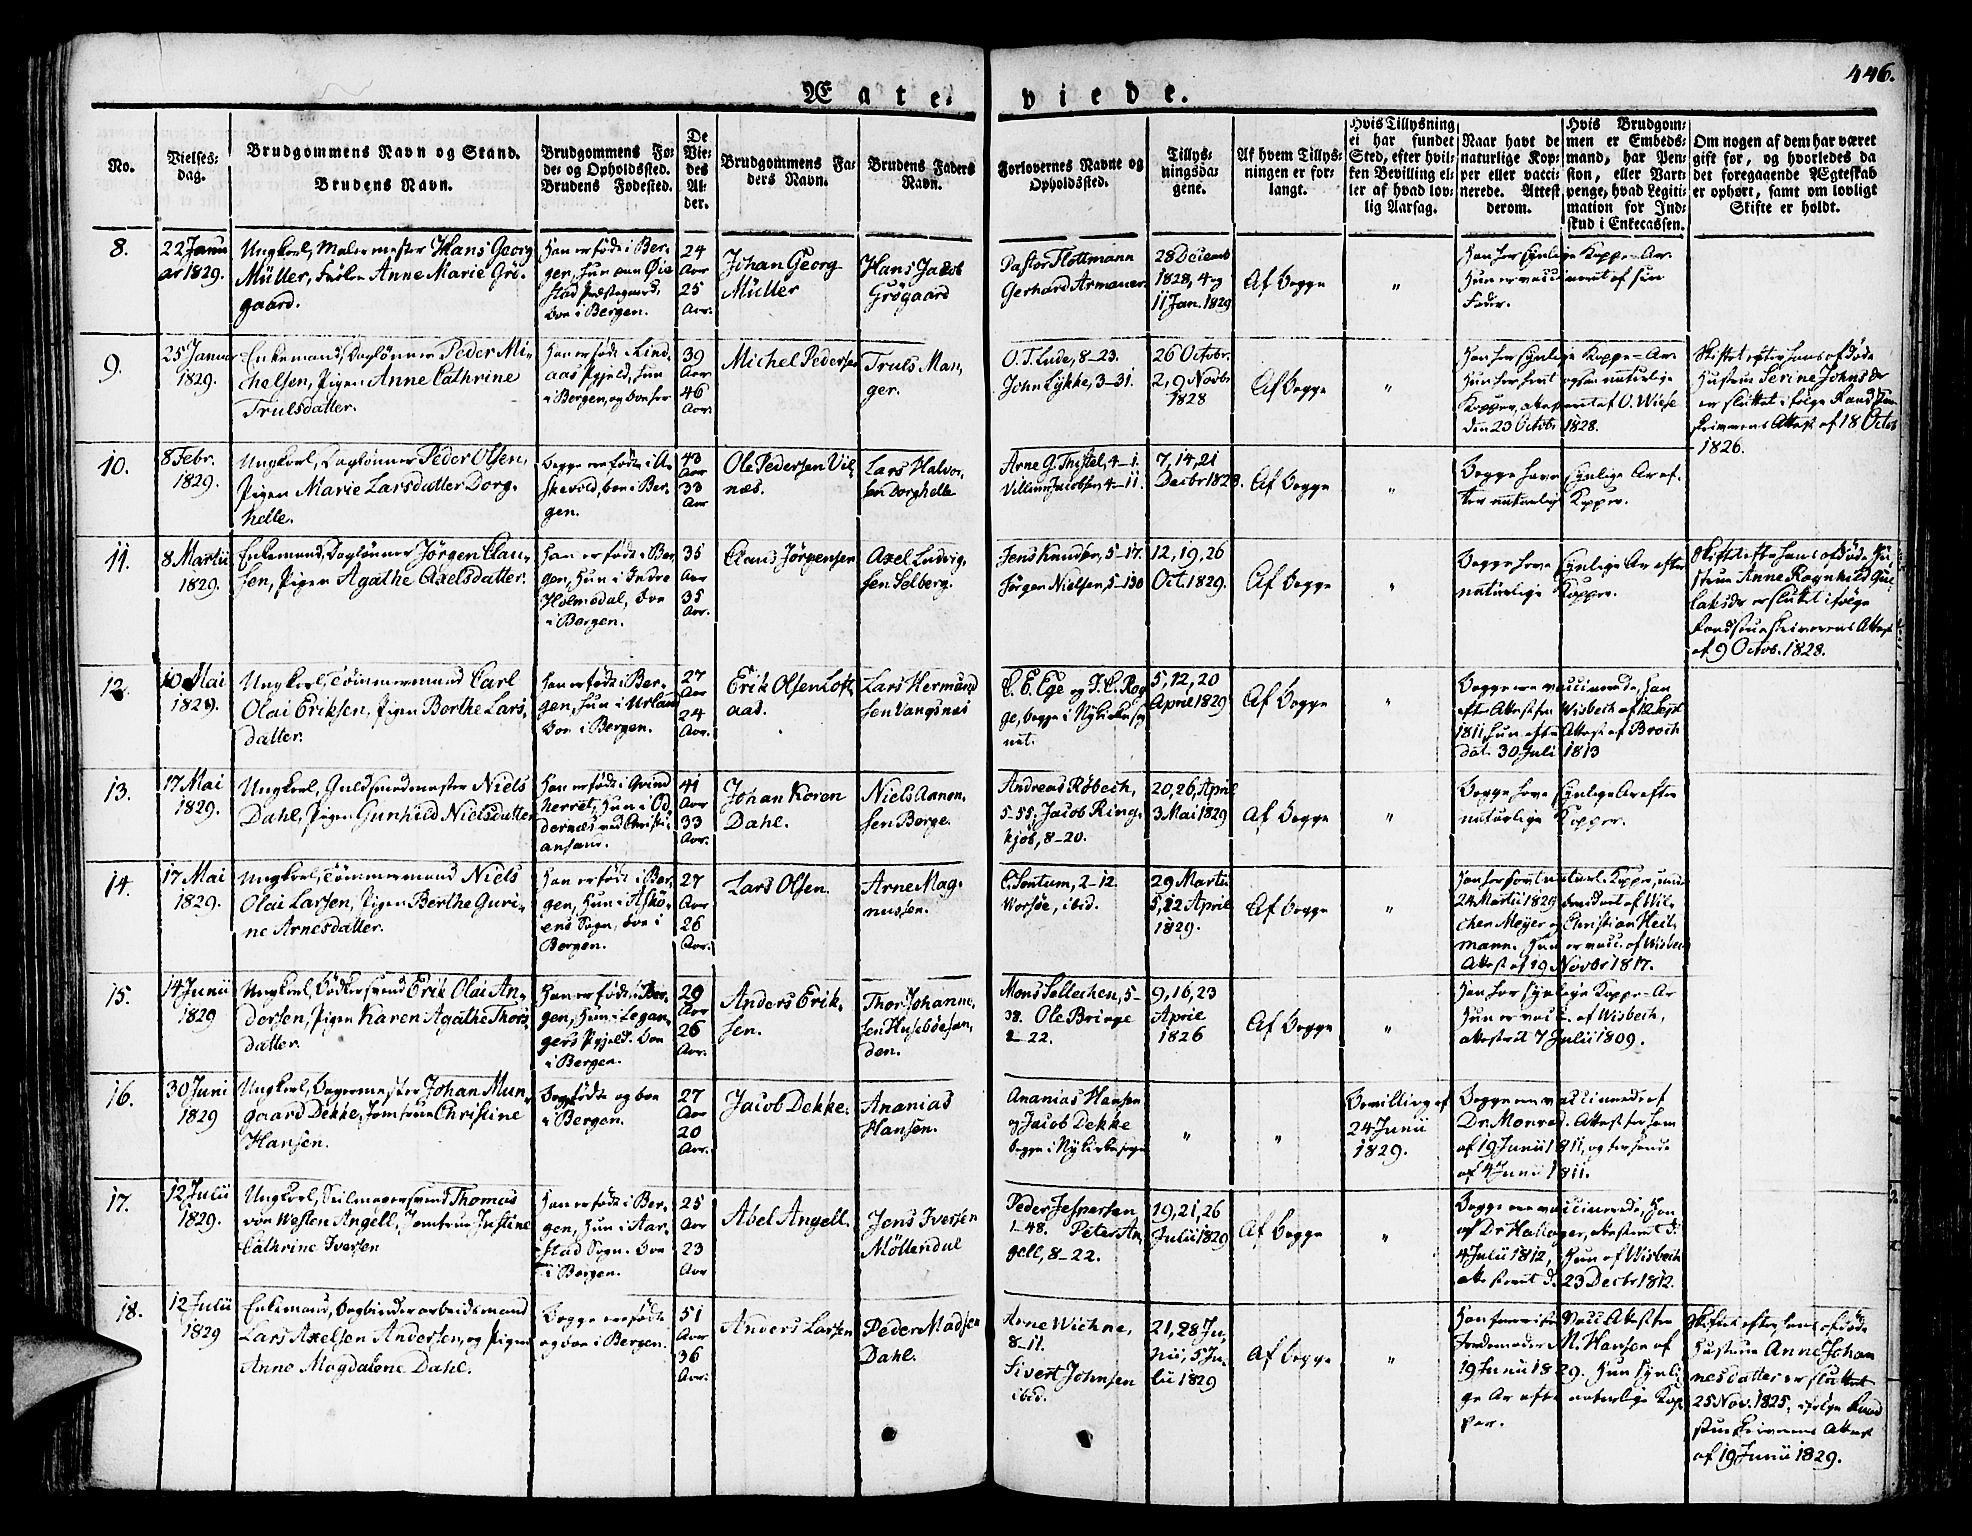 446.
Ægte- viede.
No.
Vielses-
dag.
Brudgommens Navn og Stand.
Brudens Navn.
Brudgommens Fø-
de- og Opholdssted.
Brudens Fødested.
De
Vie-
des
Al-
der.
Brudgommens Fa-
ders Navn.
Brudens Faders
Navn.
Forlovernes Navne og
Opholdssted.
Tillys-
ningsda-
gene.
Af hvem Tillys-
ningen er for-
langt.
Hvis Tillysning
ei har fundet
Sted, efter hvil-
ken Bevilling el-
ler af hvad lov-
lig Aarsag.
Naar havt de
naturlige Kop-
per eller vacci-
nerede. Attest
derom.
Hvis Brudgom-
men er Embeds-
mand, har Pen-
sion, eller Vart-
penge, hvad Legiti-
mation for Ind-
skud i Enkecassen.
Om nogen af dem har været
gift før, og hvorledes da
det foregaaende Ægteskab
er ophørt, samt om lovligt
Skifte er holdt.
8.
22 Janu
ar 1829.
Ungkarl, Malermester Hans Georg
Müller, Frøken Anne Marie Grø-
gaard.
Han er født i Ber-
gen, hun paa Øie
stad Præstegaard,
boe i Bergen.
24
Aar
25
Aar.
Johan Georg
Müller
Hans Jacob
Grøgaard
Pastor Flottmann
Gerhard Armauer
28 Decemb
1828, 4 og
11 Jan. 1829
Af begge
"
Han har synlige Koppe-Ar.
Hun er vaccineret af sin
Fader.
9.
25 Januar
1829.
Enkemand, Daglønner Peder Mi-
chelsen, Pigen Anne Cathrine
Trulsdatter.
Han er født i Lind
aas Pgjeld, hun
i Bergen, og boe her
39
Aar
46
Aar.
Michel Pedersen
Truls Man-
ger.
O. T. Lude, 8-23.
John Lykke, 3-31.
26 Octobr.
2, 9 Novbr
1828
Af begge
"
Han har synlige Koppe-Ar
Hun har havt ogsaa naturlige
Kopper, attesteret af O. Wiese
den 23 Octobr 1828.
Skiftet efter hans afdøde
Hustrue Serine Johnsdr
er sluttet ifølge Raadstue
skriverens Attest af 18 Octob
1826.
10.
8 Febr.
1829.
Ungkarl, Daglønner Peder Olsen,
Pigen Marie Larsdatter Dorg-
helle.
Begge ere fødte i A-
skevold, boe i Ber-
gen.
43
Aar
33
Aar
Ole Pedersen Vil
næs.
Lars Halvor-
sen Dorghelle
Arne G. Thistel, 4-1.
Villum Jacobsen, 4-11.
7, 14, 21
Decbr 1828.
Af begge
"
Begge have synlige Ar af-
ter naturlige Kopper.
11.
8 Martii
1829.
Enkemand, Daglønner Jørgen Clau-
sen, Pigen Agathe Axelsdatter.
Han er født i Ber
gen, hun i Indre
Holmedal, boe
i Bergen.
35
Aar
35
Aar.
Claus Jørgensen
Axel Ludvig-
sen Solberg.
Jens Knudsen, 5-17.
Jørgen Nielsen, 5-130
12, 19, 26
Oct. 1829.
Af begge
"
Begge have synlige Ar efter
naturlige Kopper.
Skiftet efter hans afdøde Hu-
strue Anne Ragnhild
er sluttet ifølge
Raadstueskriverens Attest
af 9 Octob. 1828.
12.
10 Mai
1829.
Ungkarl, Tømmermand Carl
Olai Eriksen, Pigen Berthe Lars-
datter.
Han er født i Ber-
gen, hun i Urland
boe i Bergen.
27
Aar
24
Aar.
Erik Olsen Loft
aas.
Lars Hermund
sen Vangsnæs
C. E. Ege og J. C. Rog
ge, begge i Nykirkesog
net.
5, 12, 20
April 1829
Af begge
"
Begge ere vaccinerede, han
efter Attest fra Wisbech af 12 Sept
1811, hun efter Attest af Broch
dat. 30 Juli 1813
13.
17 Mai
1829.
Ungkarl, Guldsmedmester Niels
Dahl, Pigen Gunhild Nielsdatter
Han er født i Qvind
herret, hun i Od
dernæs ved Christi-
ansand.
41
Aar
33
Aar.
Johan Koren
Dahl.
Niels Aanen-
sen Berge.
Andreas Røbech,
5-55, Jacob Ring-
kjøb, 8-20.
20, 26, April
3 Mai 1829
Af begge
"
Begge have synlige Ar efter
naturlige Kopper.
14.
17 Mai
1829.
Ungkarl, Tømmermand Niels
Olai Larsen, Pigen Berthe Guri-
ne Arnesdatter.
Han er født i Ber-
gen, hun i Askø-
ens Sogn, boe i
Bergen.
27
Aar
26
Aar.
Lars Olsen.
Arne Mag-
nussen.
C. Sontum, 2-12.
Worsøe, ibid.
29 Martii
5, 12 April
1829.
Af begge
"
Han har havt naturl. Kopper, under
24 Martii 1829 bevidnet af Wil-
chen Meyer og Christian Heil-
mann. Hun er vacc. af Wisbech
Attest af 19 Novbr 1817.
15.
14 Junii
1829
Ungkarl, Bødkersvend Erik Olai An-
dersen, Pigen Karen Agathe Thors-
datter.
Han er født i Ber-
gen, hun i Legan-
gers Pgjeld. boe
i Bergen.
29
Aar
26
Aar.
Anders Erik-
sen.
Thor Johanne-
sen Husebøesan-
den.
Mons Sellechen, 5-
38. Ole Bringe
2-22.
9, 16, 23
April
1826
Af begge
"
Han har synlige Koppe-Ar
Hun er vacc. af Wisbech,
attesteret 7 Julii 1809.
16.
30 Juni
1829
Ungkarl, Bagermester Johan Mun-
gaard Dekke, Jomfrue Christine
Hansen.
Begge fødte og boe
i Bergen.
27
Aar
20
Aar.
Jacob Dekke.
Ananias
Hansen.
Ananias Hansen
og Jacob Dekke
begge i Nykirkesogn
"
"
Bevilling af
24 Junii
1829.
Begge ere vaccinerede af
Dr. Monrad. Attest for ham
af 19 Junii 1811, og for hende
af 4 Juni 1811.
17.
12 Julii
1829.
Ungkarl, Seilmagersvend Thomas
von Westen Angell, Jomfrue Justine
Cathrine Iversen
Han er født i Ber-
gen, hun i Aar-
stad Sogn. boe
i Bergen.
25
Aar
23
Aar
Abel Angell.
Jens Iversen
Møllendal
Peder Jespersen
1-48. Peter An-
gell, 8-22.
19, 21, 26
Julii 1829
Af begge
"
Begge ere vaccinerede, han
af Dr Heitager, attesteret d.
4 Julii 1812, hun af Wisbech
attesteret d. 23 Decbr 1812.
18.
12 Julii
1829
Enkemand, Bogbinderarbeidsmand
Lars Axelsen Andersen, og Pigen
Anne Magdalene Dahl.
Begge ere fødte
og boe i Bergen.
51
Aar
36
Aar.
Anders Larsen
Peder Madsen
Dahl.
Arne Wichne,
8-11.
Sivert Johnsen
ibid.
21, 28 Ju-
nii, 5 Ju-
lii 1829
Af begge
"
Han foreviser Vacc. Attest fra
Jordemoder M. Hansen af
19 Junii 1829. Hun synli-
ge Ar efter naturlige Kop
per.
Skiftet efter hans afdøde
Hustrue Anne Johan
nesdatter er sluttet
25 Nov. 1825, ifølge Raad
stueskriverens Attest
af 19 Junii 1829.